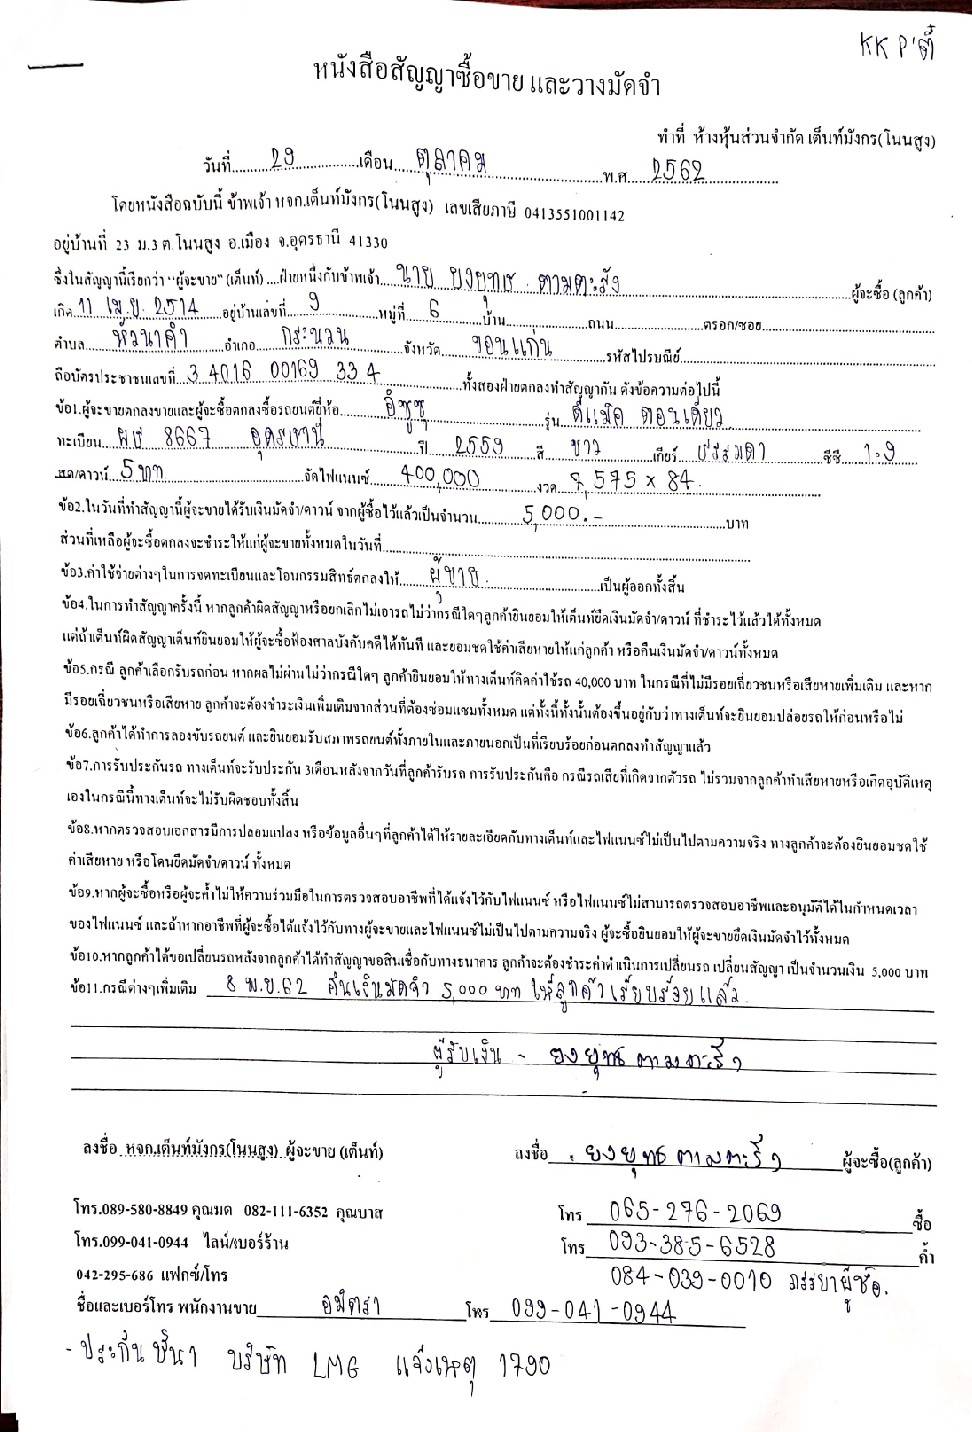 KK P'ตี๋
หนังสือสัญญาซื้อขาย และวางมัดจำ
ทำที่ ห้างหุ้นส่วนจำกัด เต็นท์มังกร(โนนสูง)
วันที่ 29 เดือน ตุลาคม พ.ศ. 2562
โดยหนังสือฉบับนี้ ข้าพเจ้า หจก.เต็นท์มังกร(โนนสูง) เลขเสียภาษี 0413551001142
อยู่บ้านที่ 23 ม.3 ต.โนนสูง อ.เมือง จ.อุดรธานี 41330
ซึ่งในสัญญานี้เรียกว่า "ผู้จะขาย" (เต็นท์) ....ฝ่ายหนึ่งกับข้าพเจ้า นาย ยงยุทธ ตามตะรัง ผู้จะซื้อ (ลูกค้า)
เกิด 11 เม.ย. 2514 อยู่บ้านเลขที่ 9 หมู่ที่ 6 บ้าน ถนน ตรอก/ซอย
ตำบล หัวนาคำ อำเภอ กระนวน จังหวัด ขอนแก่น รหัสไปรษณีย์
ถือบัตรประชาชนเลขที่ 3 4016 00169 33 4 ทั้งสองฝ่ายตกลงทำสัญญากัน ดังข้อความต่อไปนี้
ข้อ1.ผู้จะขายตกลงขายและผู้จะซื้อตกลงซื้อรถยนต์ยี่ห้อ อีซูซุ รุ่น ดีแม็ค ตอนเดียว
ทะเบียน ผษ 8667 อุดรธานี ปี 2559 สี ขาว เกียร์ ธรรมดา ซีซี 1.9
สด/ดาวน์ 5บาท จัดไฟแนนซ์ 400,000 งวด 8,575 x 84.
ข้อ2.ในวันที่ทำสัญญานี้ผู้จะขายได้รับเงินมัดจำ/ดาวน์ จากผู้ซื้อไว้แล้วเป็นจำนวน 5,000.- บาท
ส่วนที่เหลือผู้จะซื้อตกลงจะชำระให้แก่ผู้จะขายทั้งหมดในวันที่
ข้อ3.ค่าใช้จ่ายต่างๆในการจดทะเบียนและโอนกรรมสิทธ์ตกลงให้ ผู้ขาย. เป็นผู้ออกทั้งสิ้น
ข้อ4.ในการทำสัญญาครั้งนี้ หากลูกค้าผิดสัญญาหรือยกเลิกไม่เอารถไม่ว่ากรณีใดๆลูกค้ายินยอมให้เต็นท์ยึดเงินมัดจำ/ดาวน์ ที่ชำระไว้แล้วได้ทั้งหมด
แต่ถ้าเต็นท์ผิดสัญญาเต็นท์ยินยอมให้ผู้จะซื้อฟ้องศาลบังคับคดีได้ทันที และยอมชดใช้ค่าเสียหายให้แก่ลูกค้า หรือคืนเงินมัดจำ/ดาวน์ทั้งหมด
ข้อ5.กรณี ลูกค้าเลือกรับรถก่อน หากผลไม่ผ่านไม่ว่ากรณีใดๆ ลูกค้ายินยอมให้ทางเต็นท์คิดค่าใช้รถ 40,000 บาท ในกรณีที่ไม่มีรอยเฉี่ยวชนหรือเสียหายเพิ่มเติม และหาก
มีรอยเฉี่ยวชนหรือเสียหาย ลูกค้าจะต้องชำระเงินเพิ่มเติมจากส่วนที่ต้องซ่อมแซมทั้งหมด แต่ทั้งนี้ทั้งนั้นต้องขึ้นอยู่กับว่าทางเต็นท์จะยินยอมปล่อยรถให้ก่อนหรือไม่
ข้อ6.ลูกค้าได้ทำการลองขับรถยนต์ และยินยอมรับสภาพรถยนต์ทั้งภายในและภายนอกเป็นที่เรียบร้อยก่อนตกลงทำสัญญาแล้ว
ข้อ7.การรับประกันรถ ทางเต็นท์จะรับประกัน 3เดือนหลังจากวันที่ลูกค้ารับรถ การรับประกันคือ กรณีรถเสียที่เกิดจากตัวรถ ไม่รวมจากลูกค้าทำเสียหายหรือเกิดอุบัติเหตุ
เองในกรณีนี้ทางเต็นท์จะไม่รับผิดชอบทั้งสิ้น
ข้อ8.หากตรวจสอบเอกสารมีการปลอมแปลง หรือข้อมูลอื่นๆที่ลูกค้าได้ให้รายละเอียดกับทางเต็นท์และไฟแนนซ์ไม่เป็นไปตามความจริง ทางลูกค้าจะต้องยินยอมชดใช้
ค่าเสียหาย หรือโดนยึดมัดจำ/ดาวน์ ทั้งหมด
ข้อ9.หากผู้จะซื้อหรือผู้จะค้ำไม่ให้ความร่วมมือในการตรวจสอบอาชีพที่ได้แจ้งไว้กับไฟแนนซ์ หรือไฟแนนซ์ไม่สามารถตรวจสอบอาชีพและอนุมัติได้ในกำหนดเวลา
ของไฟแนนซ์ และถ้าหากอาชีพที่ผู้จะซื้อได้แจ้งไว้กับทางผู้จะขายและไฟแนนซ์ไม่เป็นไปตามความจริง ผู้จะซื้อยินยอมให้ผู้จะขายยึดเงินมัดจำไว้ทั้งหมด
ข้อ10.หากลูกค้าได้ขอเปลี่ยนรถหลังจากลูกค้าได้ทำสัญญาขอสินเชื่อกับทางธนาคาร ลูกค้าจะต้องชำระค่าดำเนินการเปลี่ยนรถ เปลี่ยนสัญญา เป็นจำนวนเงิน 5,000 บาท
ข้อ11.กรณีต่างๆเพิ่มเติม 8 พ.ย.62 คืนเงินมัดจำ 5,000 บาท ให้ลูกค้าเรียบร้อยแล้ว
ผู้รับเงิน - ยงยุทธ ตามตะรัง
ลงชื่อ หจก.เต็นท์มังกร(โนนสูง) ผู้จะขาย (เต็นท์) ลงชื่อ ยงยุทธ ตามตะรัง ผู้จะซื้อ(ลูกค้า)
โทร.089-580-8849 คุณมด 082-111-6352 คุณบาส โทร 065-276-2069 ซื้อ
โทร.099-041-0944 ไลน์/เบอร์ร้าน โทร 093-385-6528 ค้ำ
042-295-686 แฟกซ์/โทร 084-039-0010 ภรรยาผู้ซื้อ.
ชื่อและเบอร์โทร พนักงานขาย อมิตรา โทร 099-041-0944
- ประกันชั้น1 บริษัท LMG แจ้งเหตุ 1790